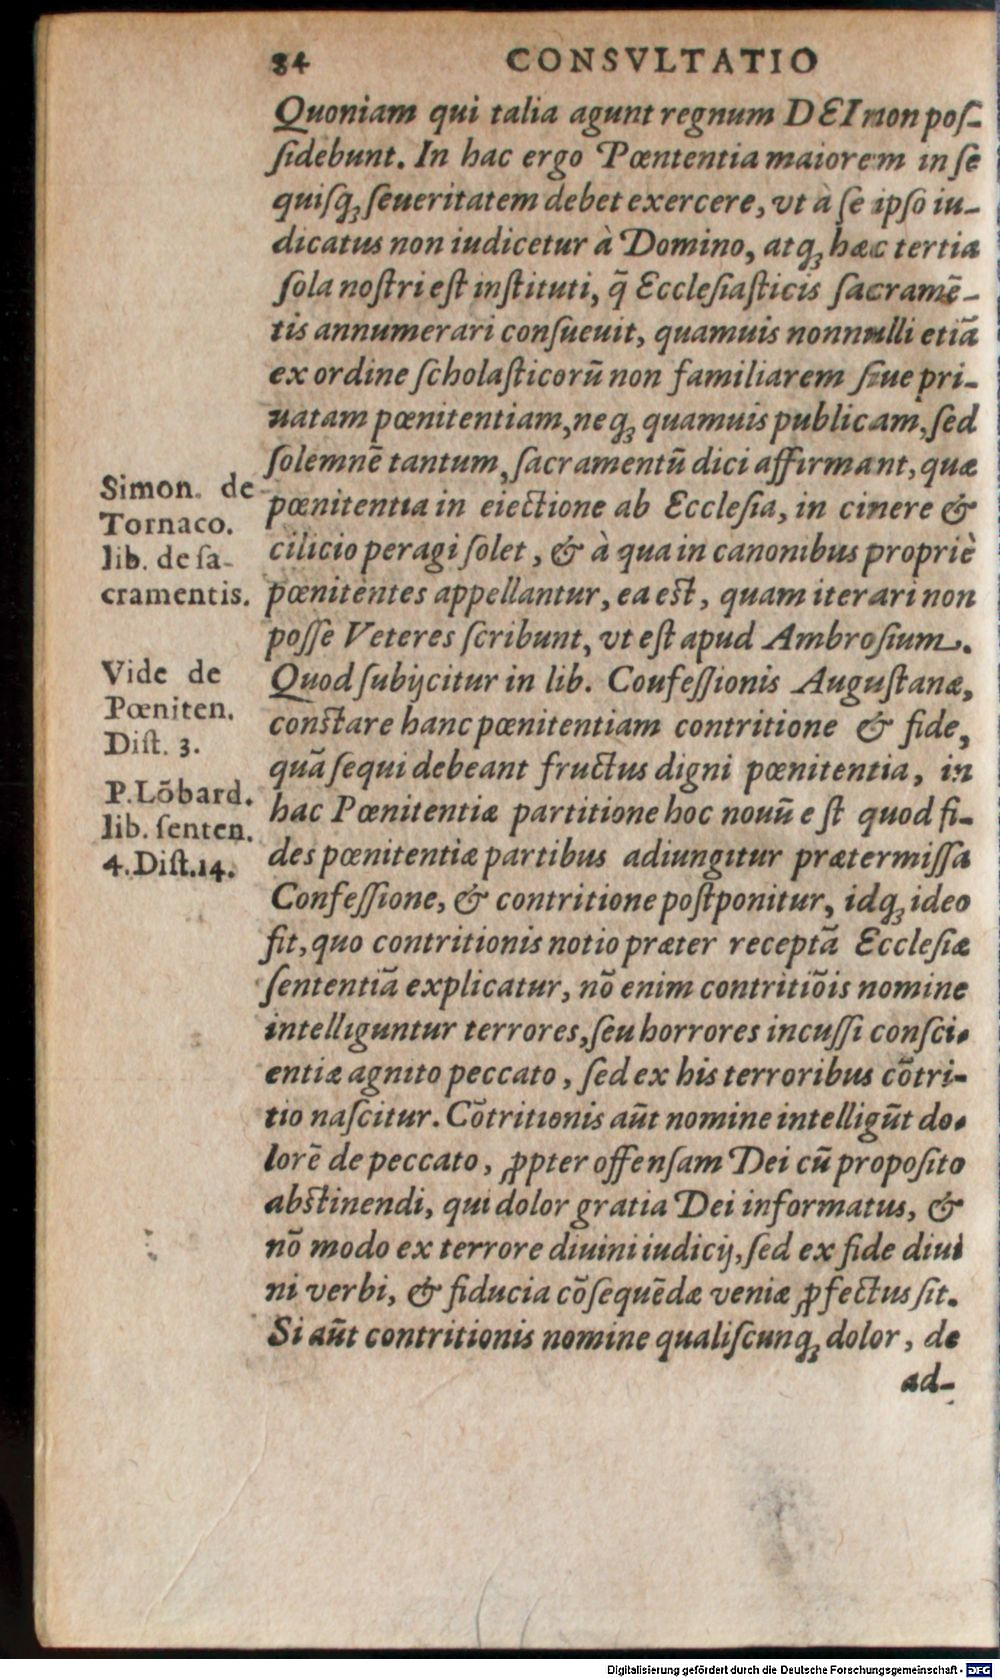 84 CONSVLTATIO
Quoniam qui talia agunt regnum DEI non poſ-
ſidebunt. In hac ergo Pœntentia maiorem in ſe
quiſq; ſeueritatem debet exercere, vt à ſe ipſo iu-
dicatus non iudicetur à Domino, atq; hæc tertia
ſola noſtri eſt inſtituti, q̃ Eccleſiaſticis ſacramẽ-
tis annumerari conſueuit, quamuis nonnulli etiã
ex ordine ſcholaſticorũ non familiarem ſiue pri-
uatam pœnitentiam, neq; quamuis publicam, ſed
ſolemnẽ tantum, ſacramentũ dici affirmant, quæ
pœnitentia in eiectione ab Eccleſia, in cinere &
cilicio peragi ſolet, & à qua in canonibus propriè
pœnitentes appellantur, ea eſt, quam iterari non
poſſe Veteres ſcribunt, vt eſt apud Ambroſium.
Quod ſubijcitur in lib. Confeſſionis Auguſtanæ,
conſtare hanc pœnitentiam contritione & fide,
quã ſequi debeant fructus digni pœnitentia, in
hac Pœnitentiæ partitione hoc nouũ eſt quod fi-
des pœnitentiæ partibus adiungitur prætermiſſa
Confeſſione, & contritione poſtponitur, idq; ideo
fit, quo contritionis notio præter receptã Eccleſiæ
ſententiã explicatur, nõ enim contritiõis nomine
intelliguntur terrores, ſeu horrores incuſſi conſci-
entiæ agnito peccato, ſed ex his terroribus cõtri-
tio naſcitur. Cõtritionis aũt nomine intelligũt do-
lorẽ de peccato, ꝓpter offenſam Dei cũ propoſito
abſtinendi, qui dolor gratia Dei informatus, &
nõ modo ex terrore diuini iudicij, ſed ex fide diui
ni verbi, & fiducia cõſequẽdæ veniæ ꝓfectus ſit.
Si aũt contritionis nomine qualiſcunq; dolor, de
ad-
Simon. de
Tornaco.
lib. de ſa-
cramentis.
Vide de
Pœniten.
Diſt. 3.
P. Lõbard.
lib. ſenten.
4. Diſt. 14.
Digitalisierung gefördert durch die Deutsche Forschungsgemeinschaft - DFG